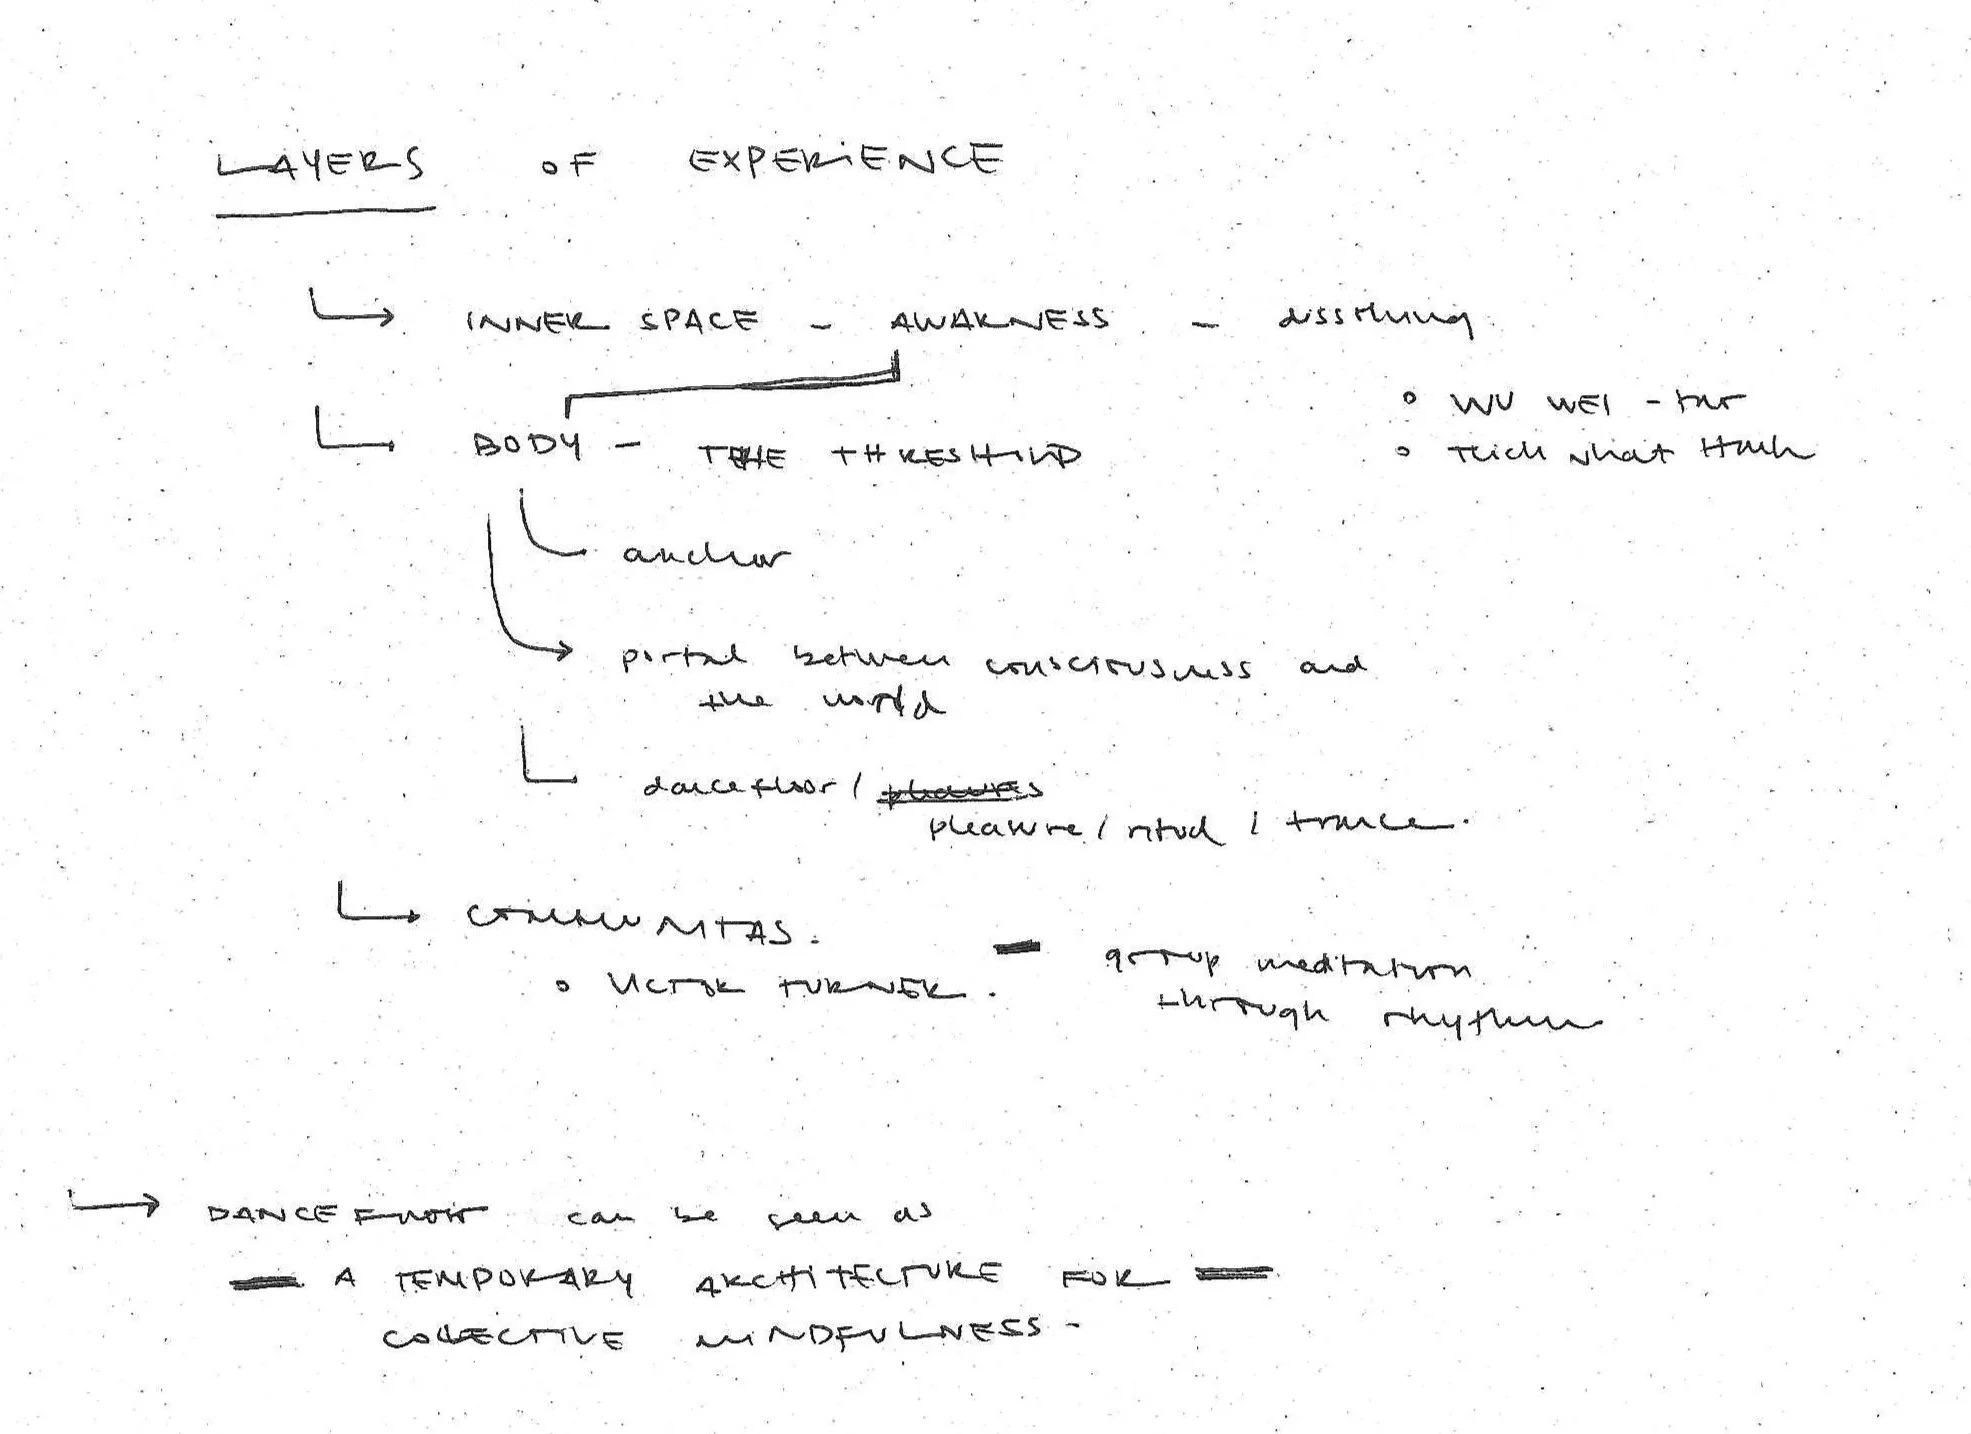 LAYERS OF EXPERIENCE
INNER SPACE - AWARNESS -
BODY - THE THRESHOLD
• WU WEI -
• Thich Nhat Hanh
anchor
portal between consciousness and
the world
dancefloor /
pleasure / ritual / trance.
COMMUNITAS.
• VICTOR TURNER.
- group meditation
through rhythm
DANCEFLOOR can be seen as
- A TEMPORARY ARCHITECTURE FOR -
COLLECTIVE MINDFULNESS -